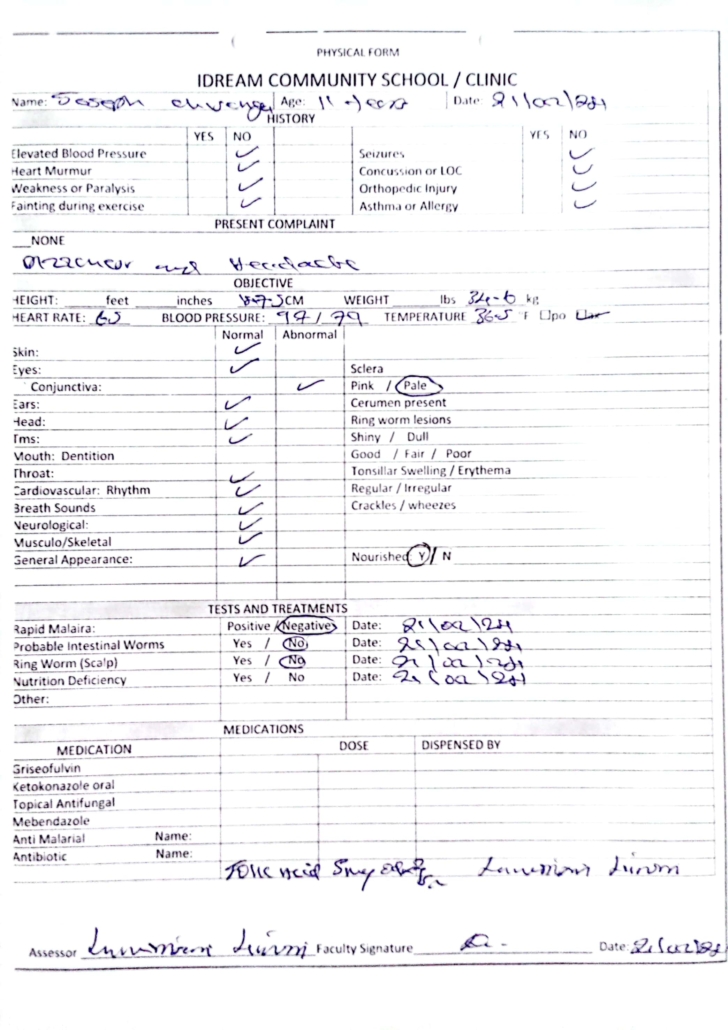 PHYSICAL FORM
IDREAM COMMUNITY SCHOOL / CLINIC
Name: Joseph Age: 11 years Date: 21/02/24
HISTORY
YES NO YES NO
Elevated Blood Pressure Seizures
Heart Murmur Concussion or LOC
Weakness or Paralysis Orthopedic Injury
Fainting during exercise Asthma or Allergy
PRESENT COMPLAINT
__NONE
and Headache
OBJECTIVE
HEIGHT: ______ feet ______ inches CM WEIGHT ______ lbs 34.6 kg
HEART RATE: 65 BLOOD PRESSURE: 97 / 79 TEMPERATURE 36.5 °F □po
Normal Abnormal
Skin:
Eyes: Sclera
Conjunctiva: Pink / Pale
Ears: Cerumen present
Head: Ring worm lesions
Tms: Shiny / Dull
Mouth: Dentition Good / Fair / Poor
Throat: Tonsillar Swelling / Erythema
Cardiovascular: Rhythm Regular / Irregular
Breath Sounds Crackles / wheezes
Neurological:
Musculo/Skeletal
General Appearance: Nourished: Y / N
TESTS AND TREATMENTS
Rapid Malaira: Positive / Negative Date: 21/02/24
Probable Intestinal Worms Yes / No Date: 21/02/24
Ring Worm (Scalp) Yes / No Date: 21/02/24
Nutrition Deficiency Yes / No Date: 21/02/24
Other:
MEDICATIONS
MEDICATION DOSE DISPENSED BY
Griseofulvin
Ketokonazole oral
Topical Antifungal
Mebendazole
Anti Malarial Name:
Antibiotic Name:
Folic Acid 5mg
Assessor Faculty Signature Date: 21/02/24